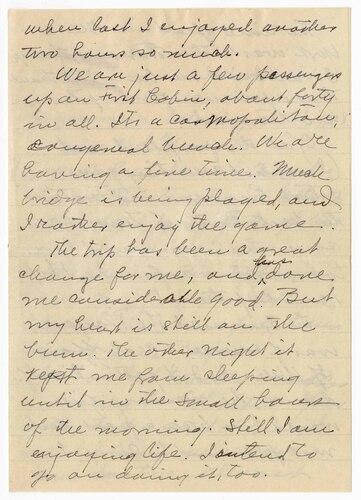 when last I enjoyed another
two hours so much.
We are just a few passengers
up on First Cabin, about forty
in all. It's a cosmopolitan,
congenial bunch. We are
having a fine time. Much
bridge is being played, and
I rather enjoy the game.
The trip has been a great
change for me, and has done
me considerable good. But
my heart is still on the
bum. The other night it
kept me from sleeping
until in the small hours
of the morning. Still I am
enjoying life. I intend to
go on doing it, too.